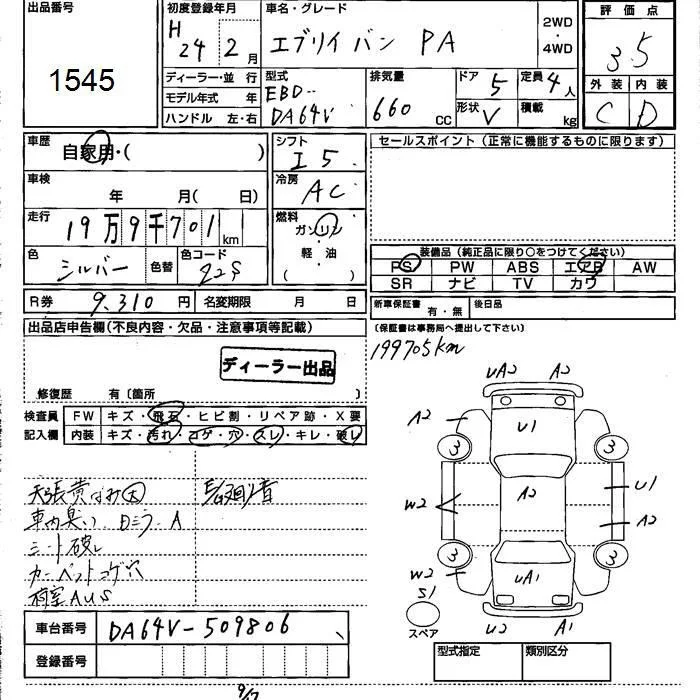 出品番号
1545
初度登録年月
H 24 2 月
車名・グレード
エブリイバン PA
2WD
・
4WD
評価点
3.5
外装 内装
C D
ディーラー・並行
モデル年式 年
ハンドル 左・右
型式
EBD--
DA64V
排気量
660 CC
ドア 5
形状 V
定員 4人
積載 kg
車歴
自家用・( )
車検
年 月( 日)
走行
19万9千701 km
色
シルバー 色替
色コード
Z2S
シフト
I5
冷房
AC
燃料
ガソリン
軽・油
( )
セールスポイント(正常に機能するものに限ります)
装備品(純正品に限り○をつけてください)
PS PW ABS エアB AW
SR ナビ TV カワ
R券 9,310 円 名変期限 月 日
新車保証書 有・無 後日品
(保証書は事務局へ提出して下さい)
199705km
出品店申告欄(不良内容・欠品・注意事項等記載)
ディーラー出品
修復歴 有〔箇所 〕
検査員 FW キズ・飛石・ヒビ割・リペア跡・X要
記入欄 内装 キズ・汚れ・コゲ・穴・スレ・キレ・破レ
天張黄ばみ大
車内臭い Dミラー A
シート破レ
カーペットコゲ穴
荷室AUS
車台番号 DA64V-509806
登録番号
UA2 A2
A2
U1
3 3
A2
W2
U1
A2
3 3
W2
S1
UA1
スペア
U2 A1
型式指定 類別区分